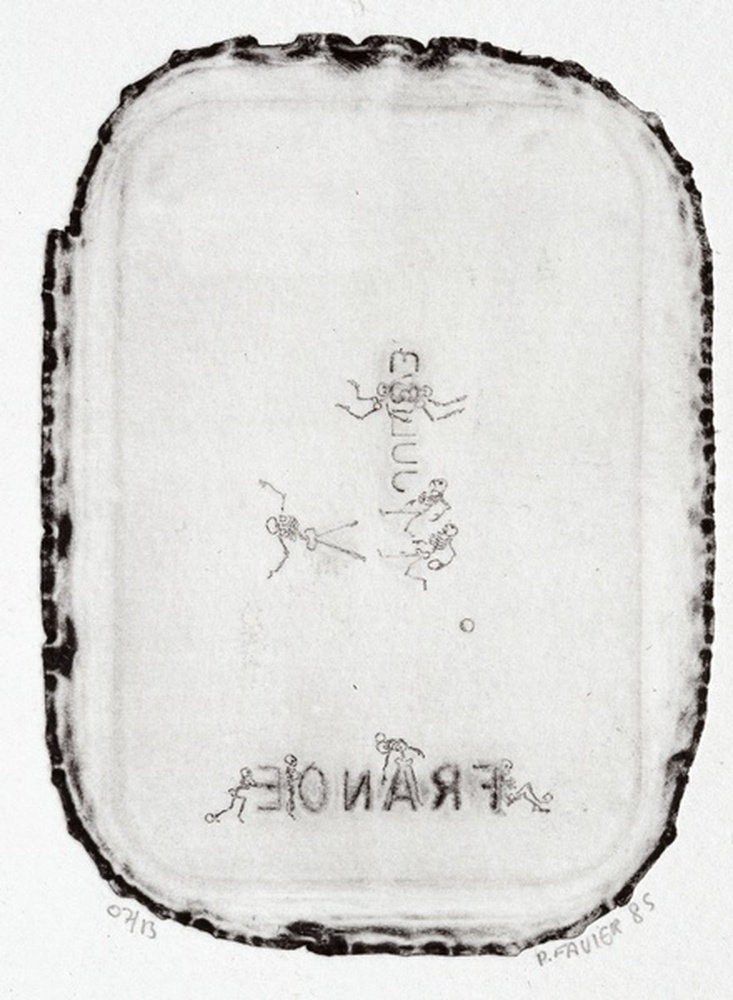 FRANCE
07/13
P. FAVIER 85